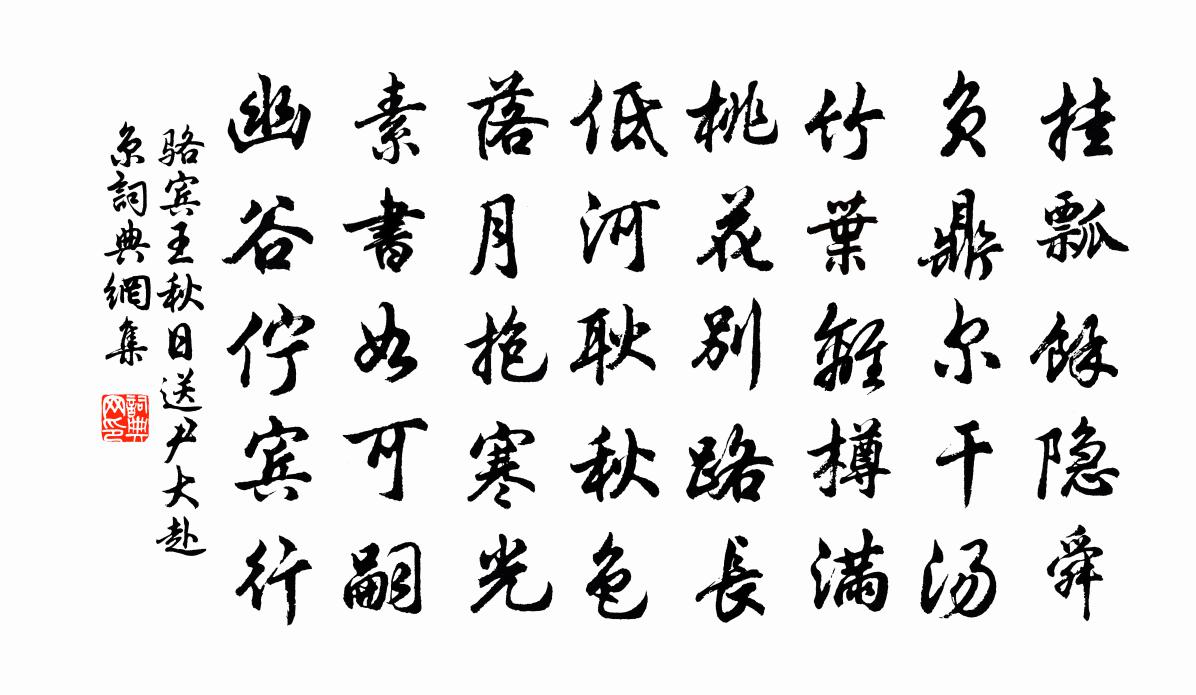 挂瓢餘隐舜
负鼎尔干汤
竹葉離樽满
桃花别路長
低河耿秋色
落月抱寒光
素書如可嗣
幽谷伫宾行
骆宾王秋日送尹大赴
京詞典網集
詞典
网印